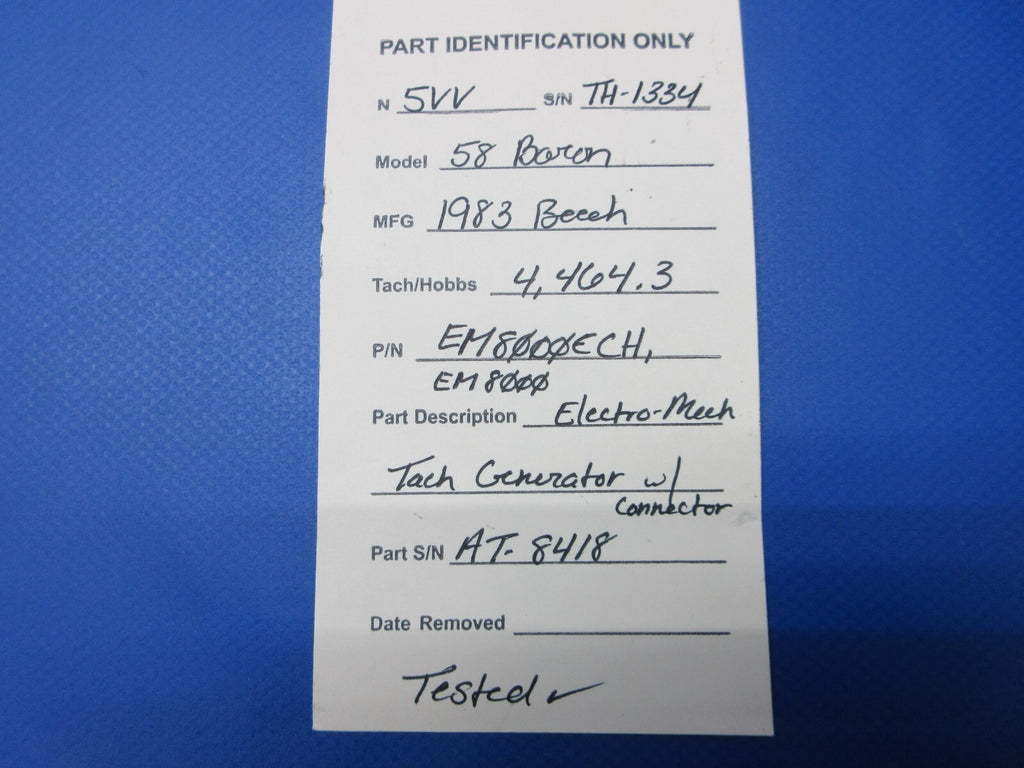 PART IDENTIFICATION ONLY
N 5VV S/N TH-1334
Model 58 Baron
MFG 1983 Beech
Tach/Hobbs 4,464.3
P/N EM8000ECH,
EM8000
Part Description Electro-Mech
Tach Generator w/
Connector
Part S/N AT-8418
Date Removed
Tested ✓